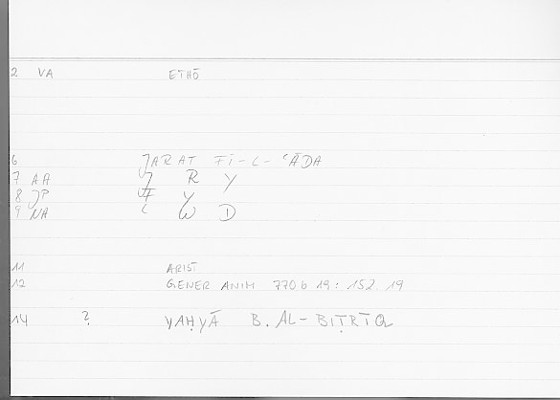 2 VA ETHŌ
6 JARAT FI-L-ʿĀDA
7 AA J R Y
8 JP F Y
9 NA ʿ W D
11 ARIST
12 GENER ANIM 770 b 19 : 152. 19
14 ? YAḤYĀ B. AL-BIṬRĪQ